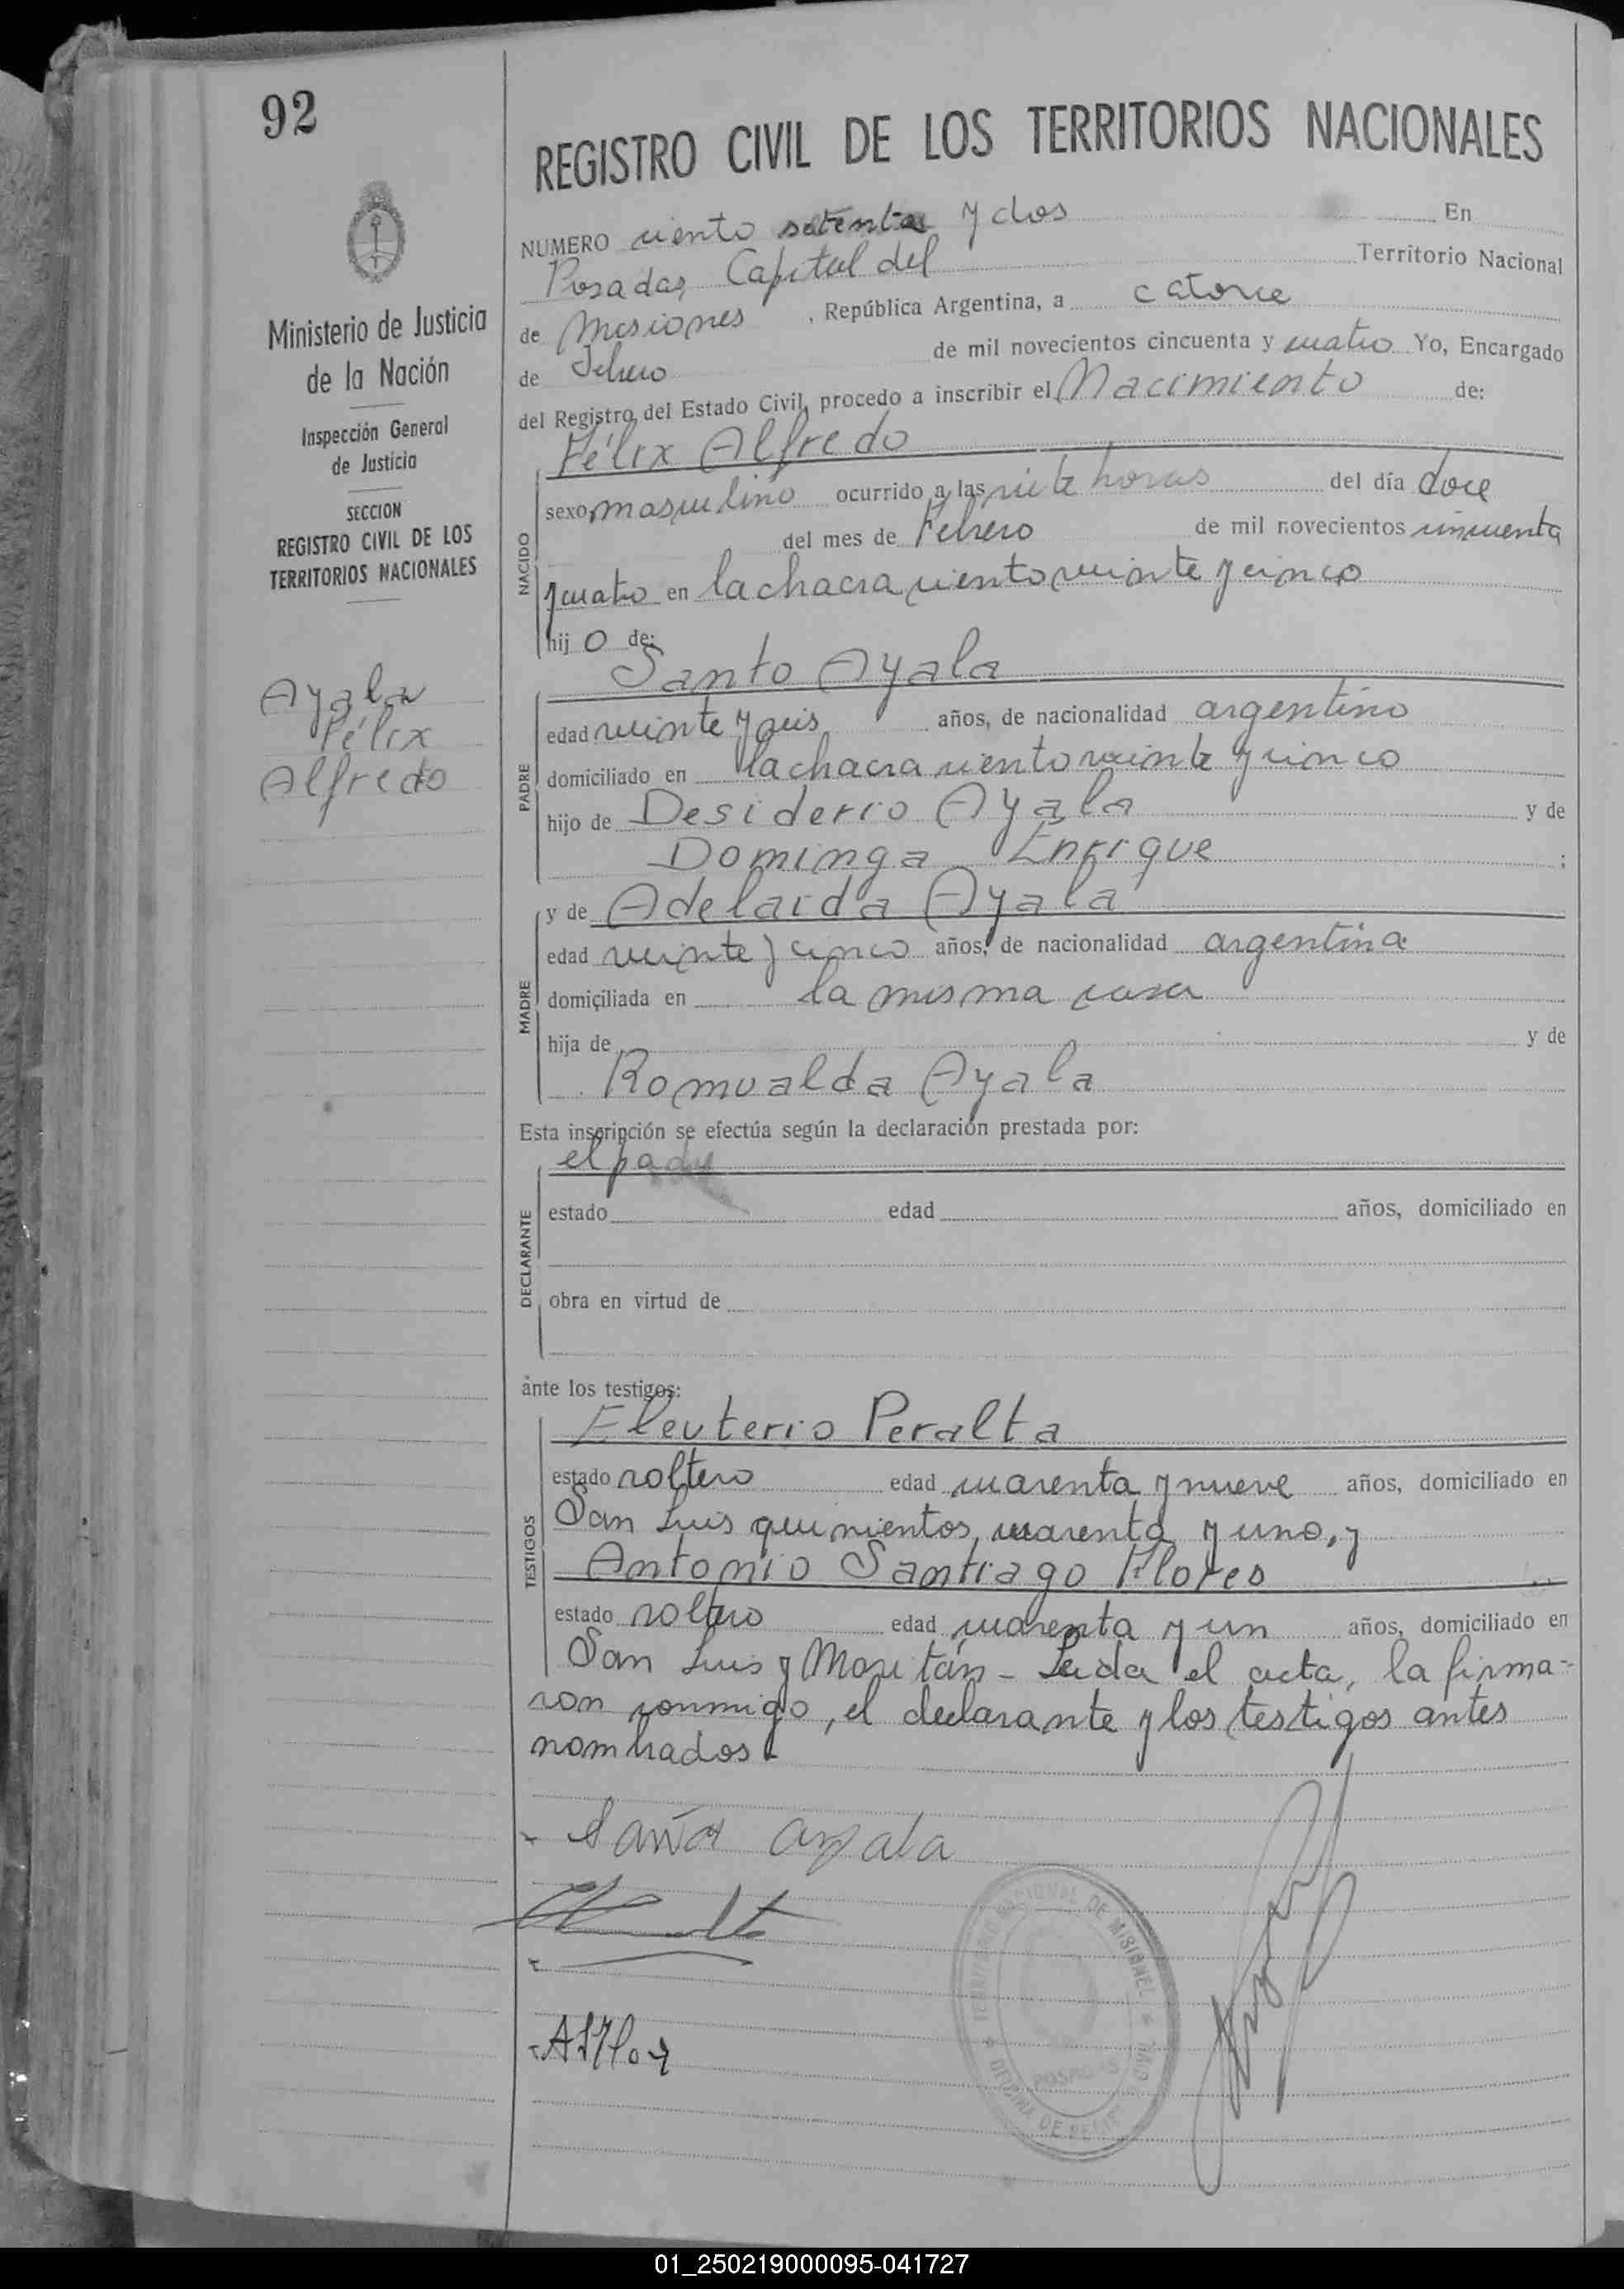 92
REGISTRO CIVIL DE LOS TERRITORIOS NACIONALES
Ministerio de Justicia
de la Nación
Inspección General
de Justicia
SECCION
REGISTRO CIVIL DE LOS
TERRITORIOS NACIONALES
Ayala
Félix
Alfredo
NUMERO ciento setenta y dos En
Posadas, Capital del Territorio Nacional
de Misiones , República Argentina, a catorce
de Febrero de mil novecientos cincuenta y cuatro Yo, Encargado
del Registro del Estado Civil, procedo a inscribir el Nacimiento de:
Félix Alfredo
NACIDO
sexo masculino ocurrido a las siete horas del día doce
del mes de Febrero de mil novecientos cincuenta
y cuatro en la chacra ciento veinte y cinco
hij o de:
Santo Ayala
PADRE
edad veinte y seis años, de nacionalidad argentino
domiciliado en la chacra ciento veinte y cinco
hijo de Desiderio Ayala y de
Dominga Enrique ;
y de Adelaida Ayala
MADRE
edad veinte y cinco años, de nacionalidad argentina
domiciliada en la misma casa
hija de y de
Romualda Ayala
Esta inscripción se efectúa según la declaración prestada por:
el padre
DECLARANTE
estado edad años, domiciliado en
obra en virtud de
ante los testigos:
Eleuterio Peralta
TESTIGOS
estado soltero edad cuarenta y nueve años, domiciliado en
San Luis quinientos cuarenta y uno, y
Antonio Santiago Flores
estado soltero edad cuarenta y un años, domiciliado en
San Luis y Moritán - Leida el acta, la firma-
ron conmigo, el declarante y los testigos antes
nombrados
Ayala
TERRITORIO NACIONAL DE MISIONES
POSADAS
01_250219000095-041727